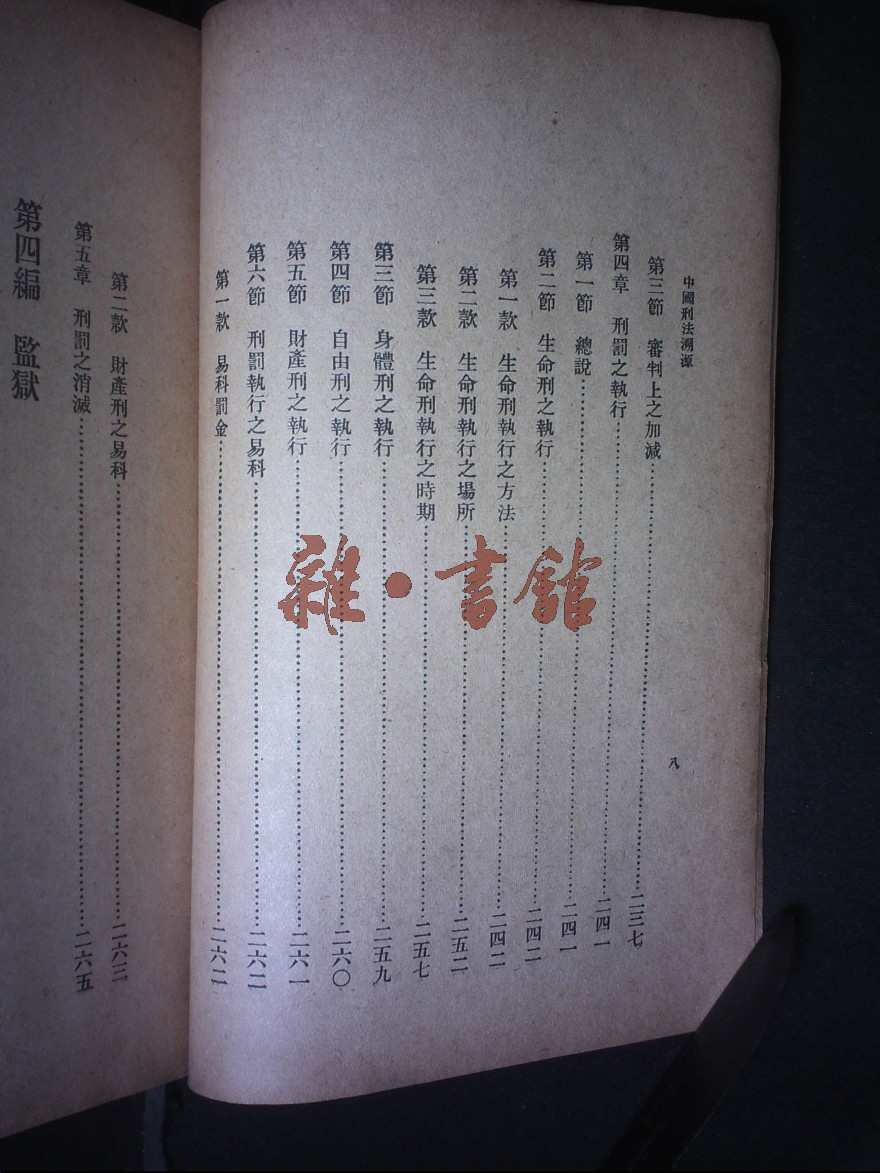 中國刑法溯源
八
第三節　審判上之加減………二三七
第四章　刑罰之執行………二四一
第一節　總說………二四一
第二節　生命刑之執行………二四二
第一款　生命刑執行之方法………二四二
第二款　生命刑執行之場所………二五二
第三款　生命刑執行之時期………二五七
第三節　身體刑之執行………二五九
第四節　自由刑之執行………二六〇
第五節　財產刑之執行………二六一
第六節　刑罰執行之易科………二六二
第一款　易科罰金………二六二
第二款　財產刑之易科………二六三
第五章　刑罰之消滅………二六五
第四編　監獄
雜·書館